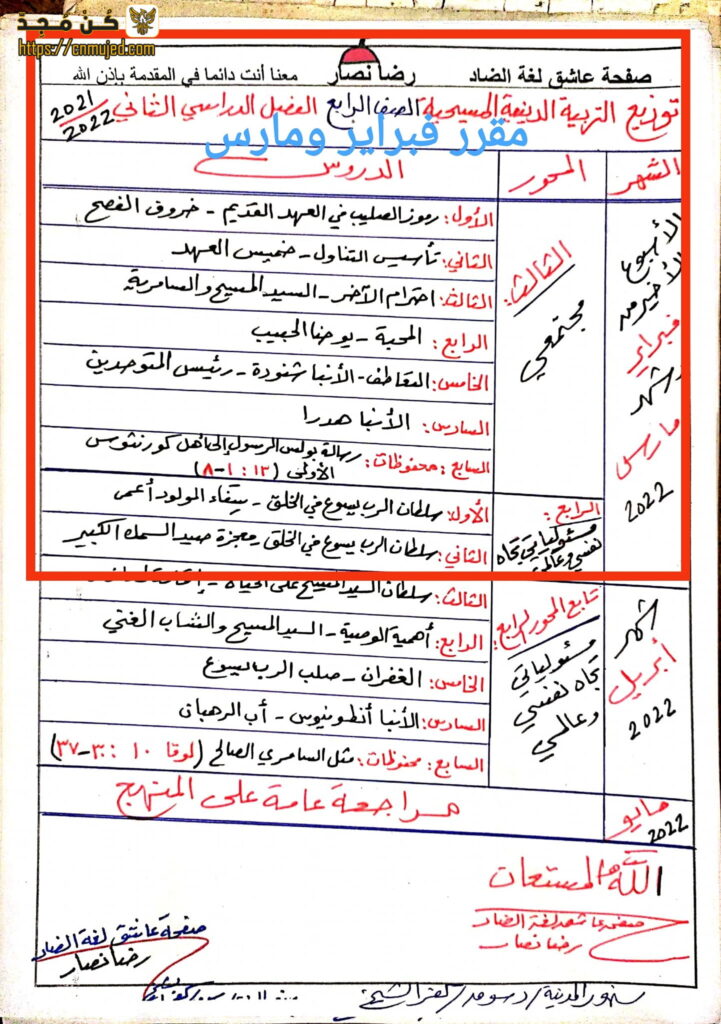 كُن مُجدّ
https://cnmujed.com
صفحة عاشق لغة الضاد رضا نصار معنا أنت دائما في المقدمة بإذن الله
توزيع التربية الدينية المسيحية الصف الرابع الفصل الدراسي الثاني 2021/2022
مقرر فبراير ومارس
الشهر المحور الدروس
الأسبوع الأخير من فبراير وشهر مارس 2022
الثالث: مجتمعي
الأول: رموز الصليب في العهد القديم - خروف الفصح
الثاني: تأسيس التناول - خميس العهد
الثالث: احترام الآخر - السيد المسيح والسامرية
الرابع: المحبة - يوحنا الحبيب
الخامس: التعاطف - الأنبا شنودة - رئيس المتوحدين
السادس: الأنبا هدرا
السابع: محفوظات: رسالة بولس الرسول إلى أهل كورنثوس الأولى (١٣: ١-٨)
الرابع: مسئولياتي تجاه نفسي وعالمي
الأول: سلطان الرب يسوع في الخلق - شفاء المولود أعمى
الثاني: سلطان الرب يسوع في الخلق - معجزة صيد السمك الكبير
شهر أبريل 2022
تابع المحور الرابع: مسئولياتي تجاه نفسي وعالمي
الثالث: سلطان السيد المسيح على الحياة -
الرابع: أهمية الوصية - السيد المسيح والشاب الغني
الخامس: الغفران - صلب الرب يسوع
السادس: الأنبا أنطونيوس - أب الرهبان
السابع: محفوظات: مثل السامري الصالح (لوقا ١٠: ٣٠-٣٧)
مايو 2022
مراجعة عامة على المنهج
الله المستعان
صفحة عاشق لغة الضاد
رضا نصار
صفحة عاشق لغة الضاد
رضا نصار
سنهور المدينة / دسوق / كفر الشيخ